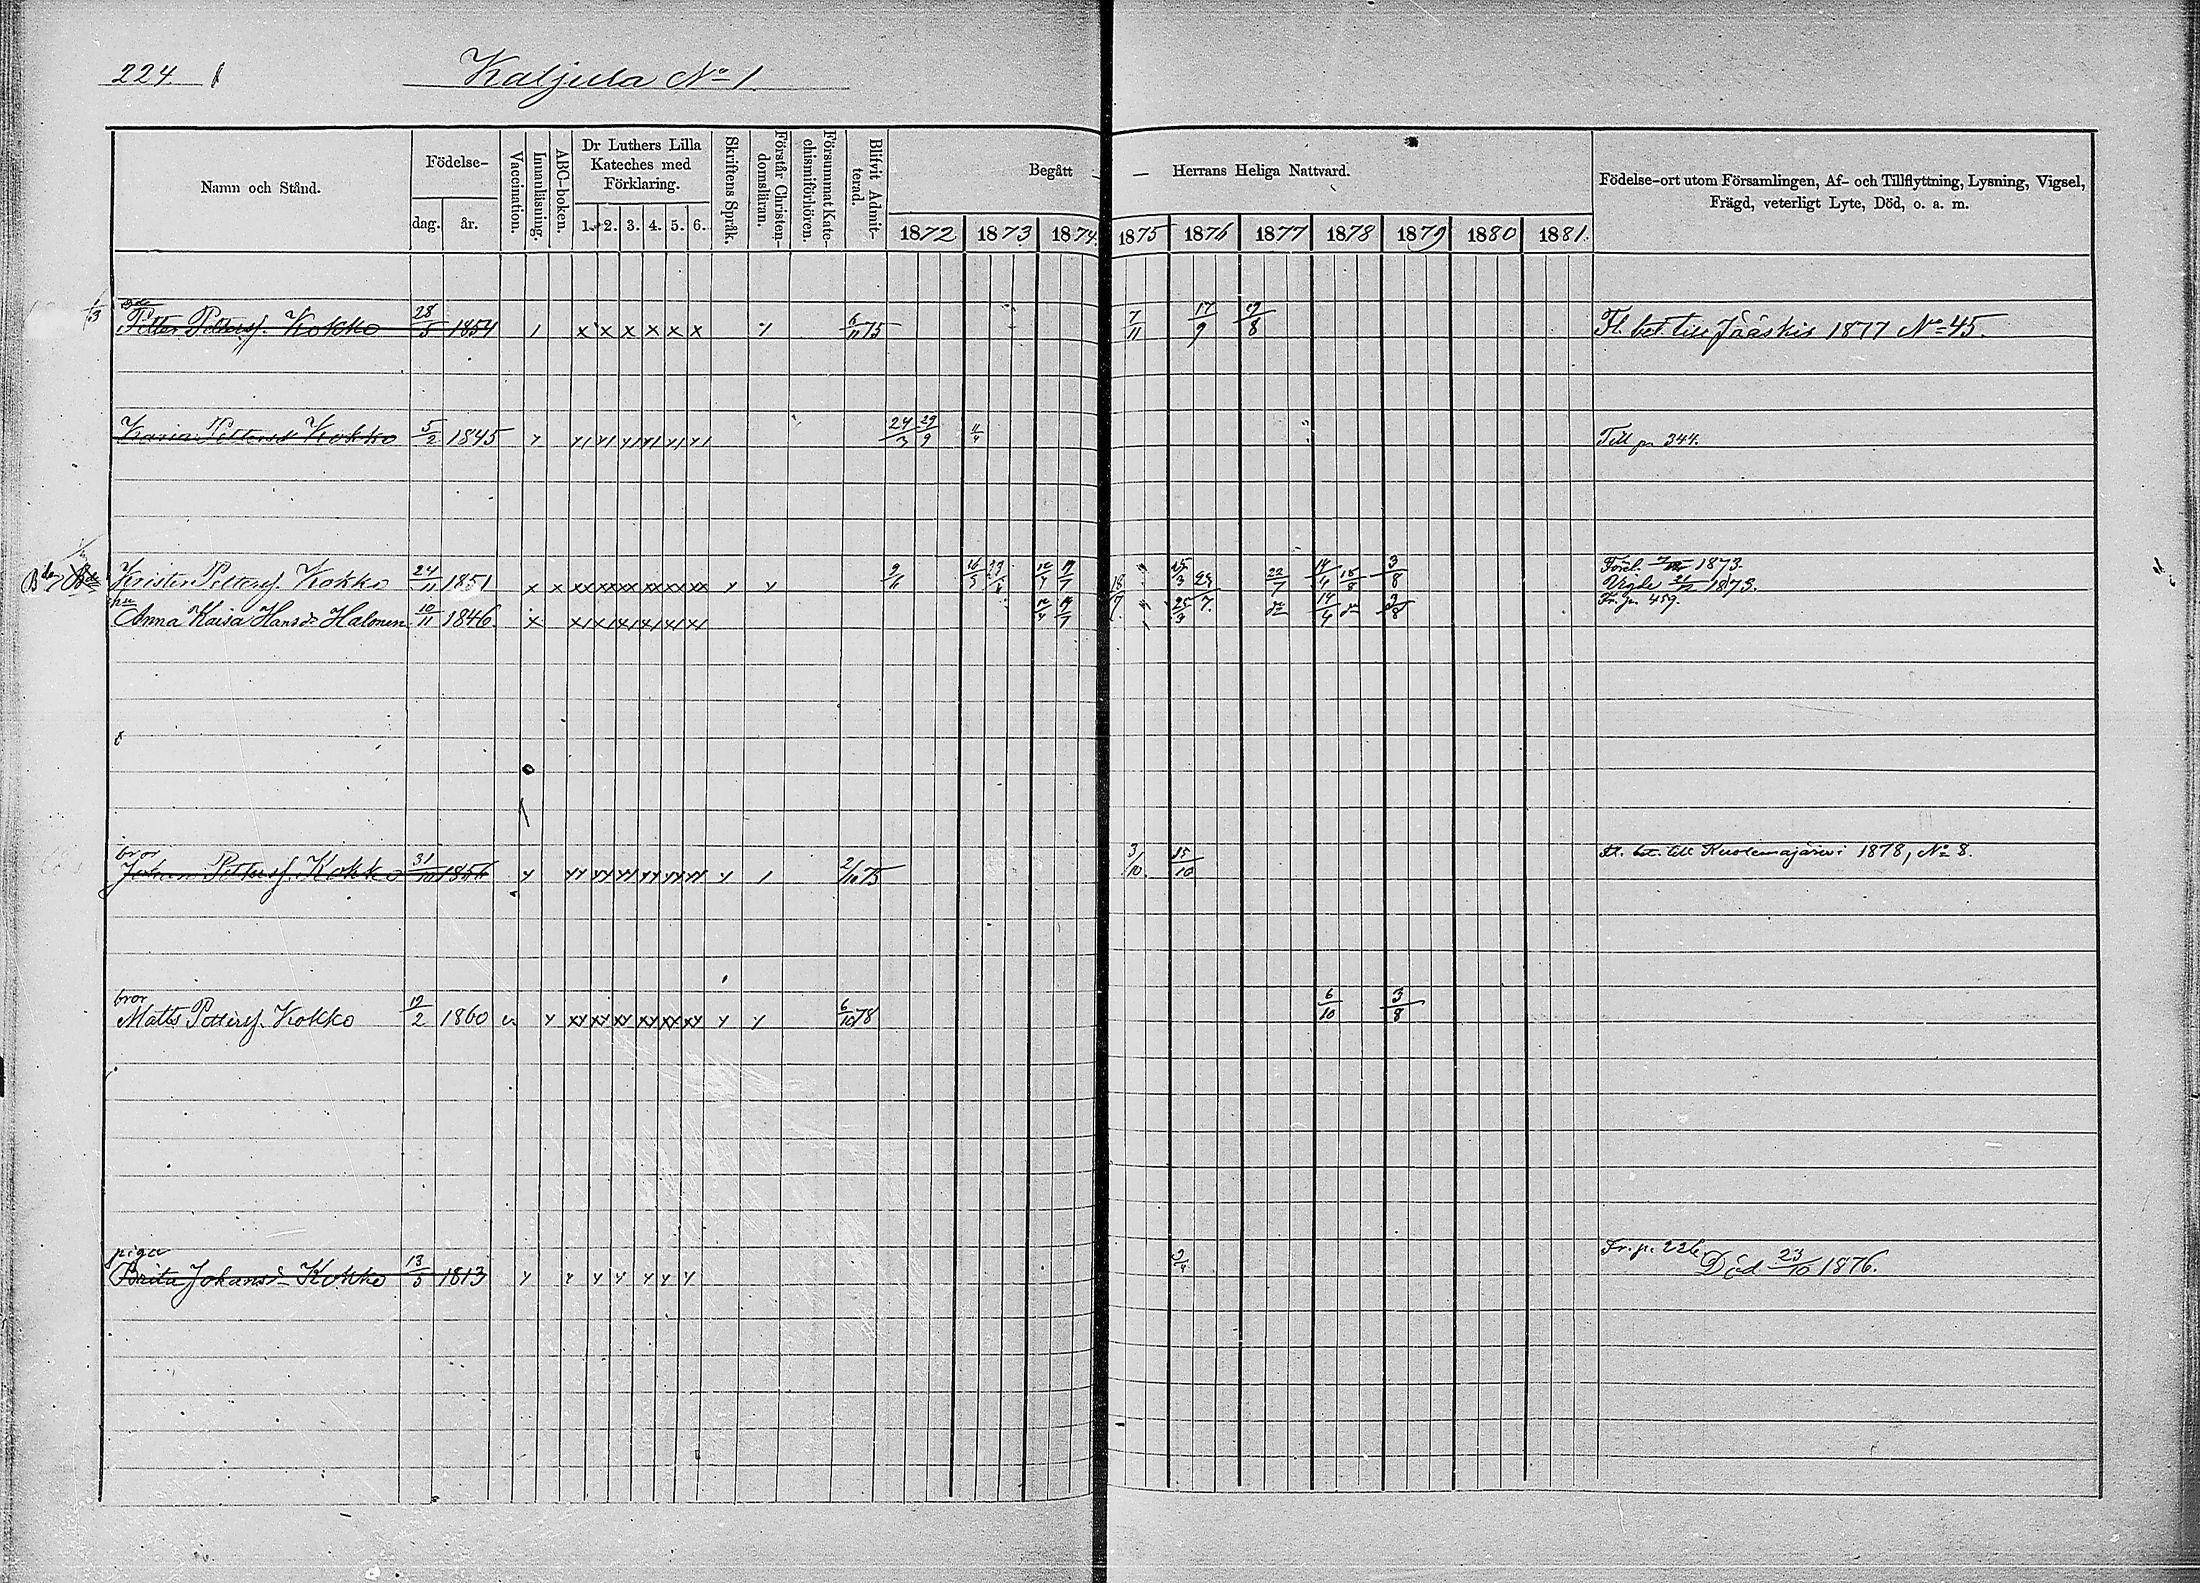 224.
Kaljula No 1
Namn och Stånd.
Födelse-
dag. år.
Vaccination.
Innanläsning.
ABC-boken.
Dr Luthers Lilla
Kateches med
Förklaring.
1. 2. 3. 4. 5. 6.
Skriftens Språk.
Förstår Christen-
domsläran.
Försummat Kate-
chismiförhören.
Blifvit Admit-
terad.
Begått — — Herrans Heliga Nattvard.
1872 1873 1874 1875 1876 1877 1878 1879 1880 1881.
Födelse-ort utom Församlingen, Af- och Tillflyttning, Lysning, Vigsel,
Frägd, veterligt Lyte, Död, o. a. m.
Petter Pettersf. Kokko 28/5 1854 6/11 75 7/11 17/9 19/8 Fl. bet. till Jääskis 1877 No 45.
Maria Pettersd Kokko 5/2 1845 24/3 29/9 11/4 Till p. 344.
Krister Pettersf. Kokko 24/11 1851 22/7 14/4 18/8 3/8 1873.
Vigde 1873.
Anna Kaisa Hansd Halonen 10/11 1846 25/3 14/4 3/8 Fr. p. 459.
bror
Johan Pettersf. Kokko 31/10 1856 2/10 75 3/10 15/10 Fl. bet. till Kuolemajärvi 1878, No 8.
bror
Matts Pettersf. Kokko 19/2 1860 6/10 78 6/10 3/8
piga
Brita Johansd Kokko 13/5 1813 2/4 Fr. p. 226 Död 23/10 1876.